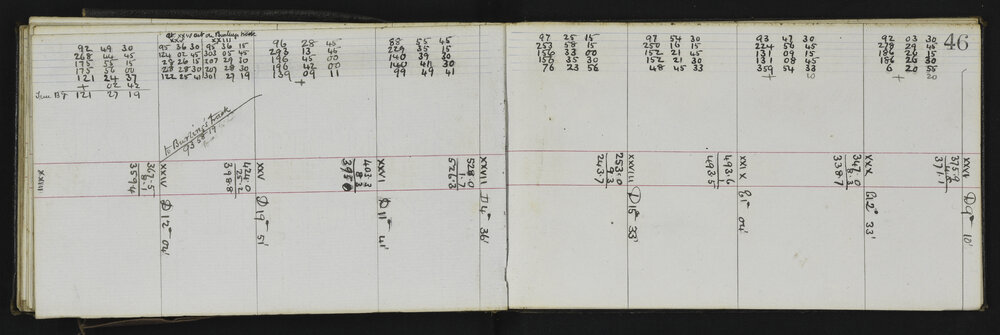 at XXIV out on Burling's track
XXV XXIII
92 49 30
268 44 45
175 55 15
175 56 07
121 24 37
+ 02 42
True Bg 121 27 19
95 36 30 95 36 15
124 02 45 303 05 45
28 26 15 207 29 30
28 28 30 207 28 30
122 25 41 301 27 19
96 28 45
293 13 45
196 45 00
196 42 00
139 09 11
+
88 55 45
229 35 15
140 39 30
140 41 30
99 49 41
97 25 15
253 58 15
156 33 00
150 35 30
76 23 56
97 54 30
250 16 15
152 21 45
152 21 30
48 45 33
93 47 30
224 56 45
131 09 15
131 08 45
359 54 33
+ 20
92 03 30
278 29 45
186 26 15
186 26 30
6 20 55
+ 20
46
to Burling's Track
93 58 19
XXIII
367.5
8.1
359.4
XXIV
D 12° 04'
424.0
25.2
398.8
XXV
D 19° 51'
403.3
8.3
395.0
XXVI
D 11° 41'
528.0
1.7
526.3
XXVII
D 4° 36'
253.0
9.3
243.7
XXVIII
D 15° 33'
493.6
493.5
XXIX
E 1° 04'
347.0
8.3
338.7
XXX
E 12° 33'
375.9
4.8
371.7
XXXI
D 9° 10'